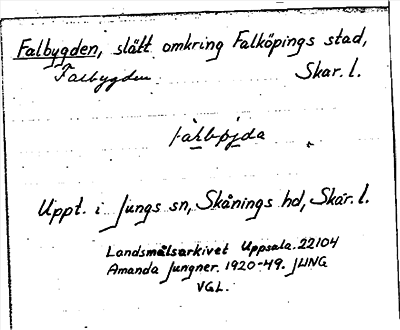 Falbygden, slätt omkring Falköpings stad,
Falbygden Skar. l.
falböjda
Uppt. i Jungs sn, Skånings hd, Skar. l.
Landsmålsarkivet Uppsala. 22104
Amanda Jungner. 1920-49. JUNG
VGL.